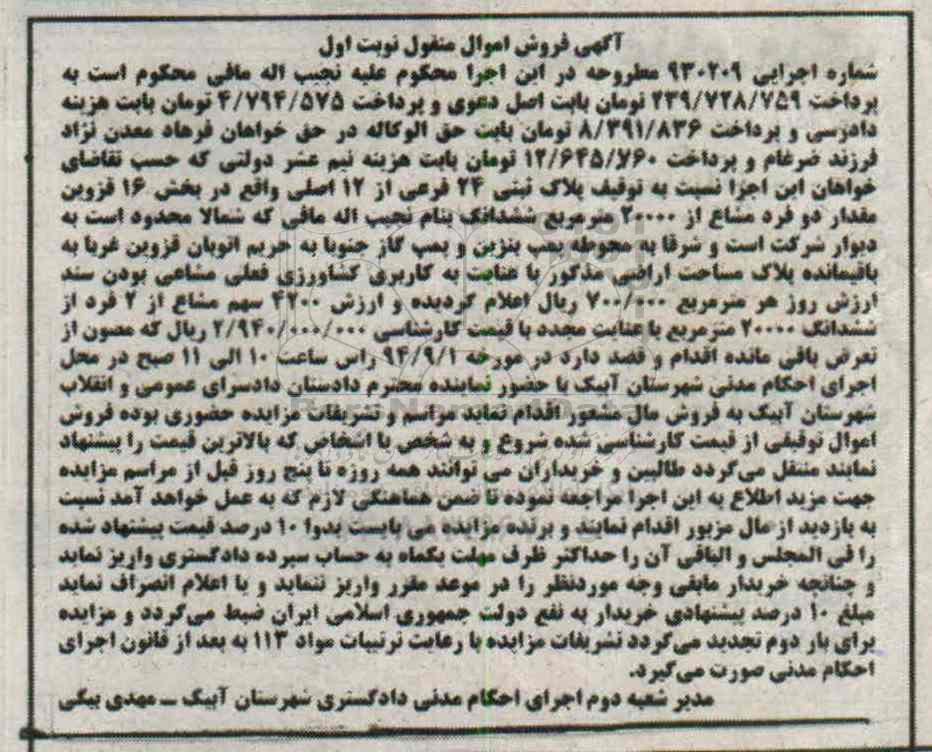 آگهی فروش اموال منقول نوبت اول
شماره اجرایی ۹۳۰۲۰۹ مطروحه در این اجرا محکوم علیه نجیب اله مافی محکوم است به
پرداخت ۲۳۹/۷۲۸/۷۵۹ تومان بابت اصل دعوی و پرداخت ۴/۷۹۴/۵۷۵ تومان بابت هزینه
دادرسی و پرداخت ۸/۳۹۱/۸۳۶ تومان بابت حق الوکاله در حق خواهان فرهاد معدن نژاد
فرزند ضرغام و پرداخت ۱۲/۶۴۵/۷۶۰ تومان بابت هزینه نیم عشر دولتی که حسب تقاضای
خواهان این اجرا نسبت به توقیف پلاک ثبتی ۲۴ فرعی از ۱۲ اصلی واقع در بخش ۱۶ قزوین
مقدار دو فرد مشاع از ۲۰۰۰۰ مترمربع ششدانگ بنام نجیب اله مافی که شمالا محدود است به
دیوار شرکت است و شرقا به محوطه پمپ بنزین و پمپ گاز جنوبا به حریم اتوبان قزوین غربا به
باقیمانده پلاک مساحت اراضی مذکور با عنایت به کاربری کشاورزی فعلی مشاعی بودن سند
ارزش روز هر مترمربع ۷۰۰/۰۰۰ ریال اعلام گردیده و ارزش ۴۲۰۰ سهم مشاع از ۲ فرد از
ششدانگ ۲۰۰۰۰ مترمربع با عنایت مجدد با قیمت کارشناسی ۲/۹۴۰/۰۰۰/۰۰۰ ریال که مصون از
تعرض باقی مانده اقدام و قصد دارد در مورخه ۹۴/۹/۱ راس ساعت ۱۰ الی ۱۱ صبح در محل
اجرای احکام مدنی شهرستان آبیک با حضور نماینده محترم دادستان دادسرای عمومی و انقلاب
شهرستان آبیک به فروش مال مشعور اقدام نماید مراسم و تشریفات مزایده حضوری بوده فروش
اموال توقیفی از قیمت کارشناسی شده شروع و به شخص یا اشخاص که بالاترین قیمت را پیشنهاد
نمایند منتقل می‌گردد طالبین و خریداران می توانند همه روزه تا پنج روز قبل از مراسم مزایده
جهت مزید اطلاع به این اجرا مراجعه نموده تا ضمن هماهنگی لازم که به عمل خواهد آمد نسبت
به بازدید از مال مزبور اقدام نمایند و برنده مزایده می بایست بدوا ۱۰ درصد قیمت پیشنهاد شده
را فی المجلس و الباقی آن را حداکثر ظرف مهلت یکماه به حساب سپرده دادگستری واریز نماید
و چنانچه خریدار مابقی وجه موردنظر را در موعد مقرر واریز ننماید و یا اعلام انصراف نماید
مبلغ ۱۰ درصد پیشنهادی خریدار به نفع دولت جمهوری اسلامی ایران ضبط می‌گردد و مزایده
برای بار دوم تجدید می‌گردد تشریفات مزایده با رعایت ترتیبات مواد ۱۱۳ به بعد از قانون اجرای
احکام مدنی صورت می‌گیرد.
مدیر شعبه دوم اجرای احکام مدنی دادگستری شهرستان آبیک ــ مهدی بیگی